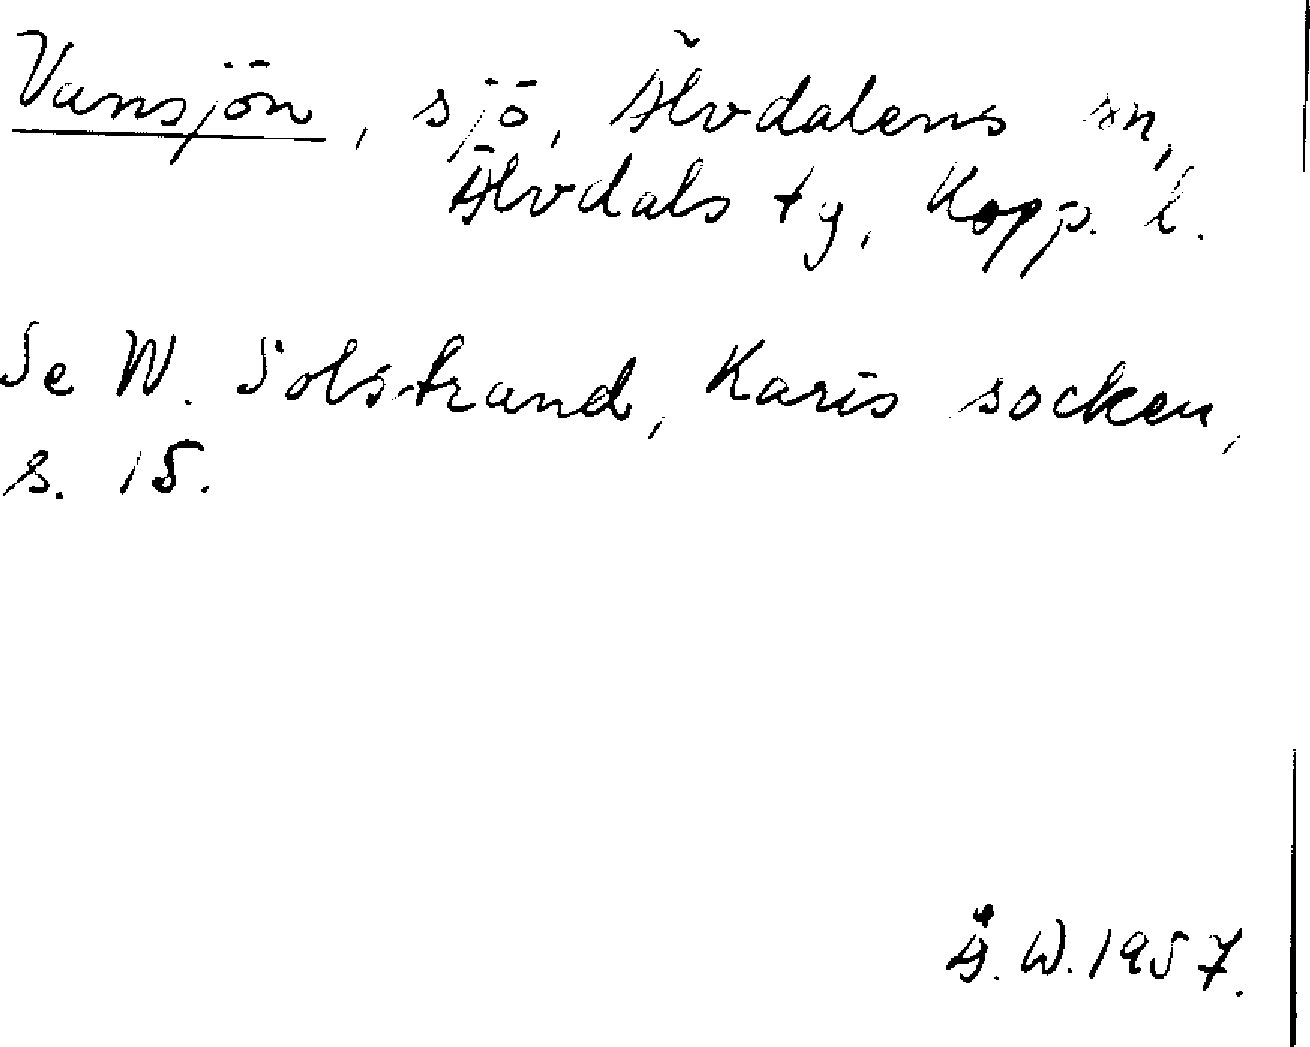 Vansjön, sjö, Älvdalens sn,
Älvdals tg, Kopp. l.
Se W. Solstrand, Karis socken,
s. 15.
Å. W. 1957.